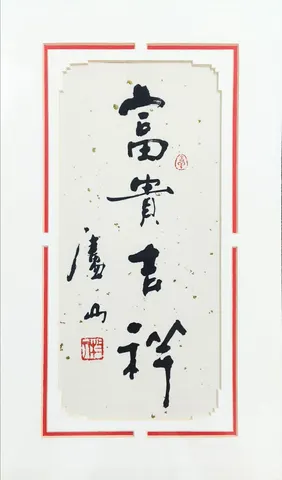 富貴吉祥
廬山